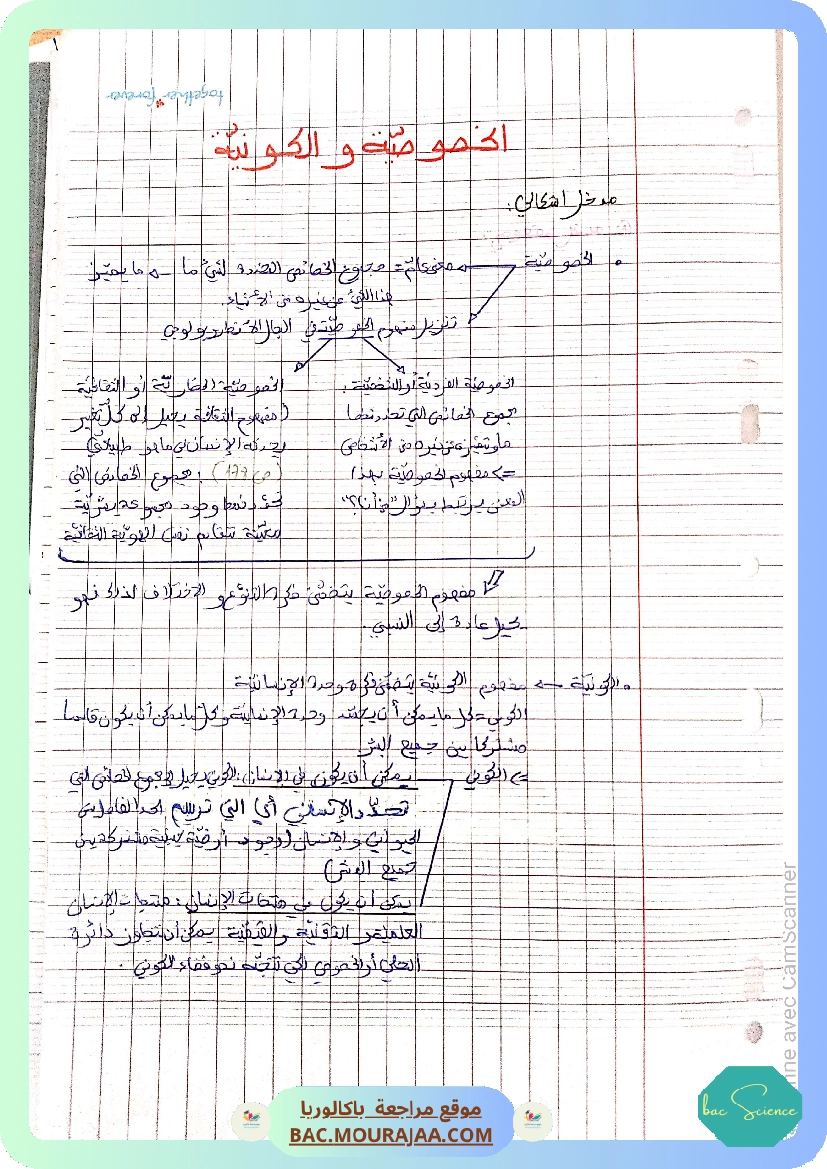 ١
together forever
الخصوصيّة و الكونيّة
مدخل اشكالي:
• الخصوصيّة ← معنى عامّ = مجموع الخصائص المحددة لشيء ما ← ما يميّز
هذا الشيء عن غيره من الأشياء.
تنزيل مفهوم الخصوصيّة في المجال الأنتروبولوجي
الخصوصيّة الفرديّة أو الشخصيّة:
مجموع الخصائص التي تحدد نمط
ما و تميّزه عن غيره من الأشخاص
=> مفهوم الخصوصيّة بهذا
المعنى يرتبط بسؤال "من أنا؟"
الخصوصيّة الحضاريّة أو الثقافيّة
(مفهوم الثقافة يحيل إلى كلّ تغيير
يحدثه الإنسان في ما هو طبيعي)
(ص 177): مجموع الخصائص التي
تحدّد نمط وجود مجموعة بشريّة
معيّنة تتقاسم نفس الهويّة الثقافيّة
مفهوم الخصوصيّة يتضمّن فكرة التنوّع و الاختلاف لذلك فهو
يحيل عادة إلى النسبي.
• الكونيّة ← مفهوم الكونيّة يتضمّن فكرة وحدة الإنسانيّة
الكوني = كل ما يمكن أن يجسّد وحدة الإنسانيّة و كلّ ما يمكن أن يكون قاسما
مشتركا بين جميع البشر
=> الكوني
يمكن أن يكون في الإنسان: الكوني يحيل إلى مجموع الخصائص التي
تحدّد الإنساني أي التي ترسم الحد الفاصل بين
الحيواني و الإنسان (وجود أرضيّة جبلية مشتركة بين
جميع البشر)
يمكن أن يكون في منتجات الإنسان: منتجات الإنسان
العلميّة و التقنيّة و القيميّة يمكن أن تتجاوز دائرة
المحلي أو الخصوصي لكي تتّجه نحو فضاء الكوني.
nne avec CamScanner
bac Science
موقع مراجعة باكالوريا
BAC.MOURAJAA.COM